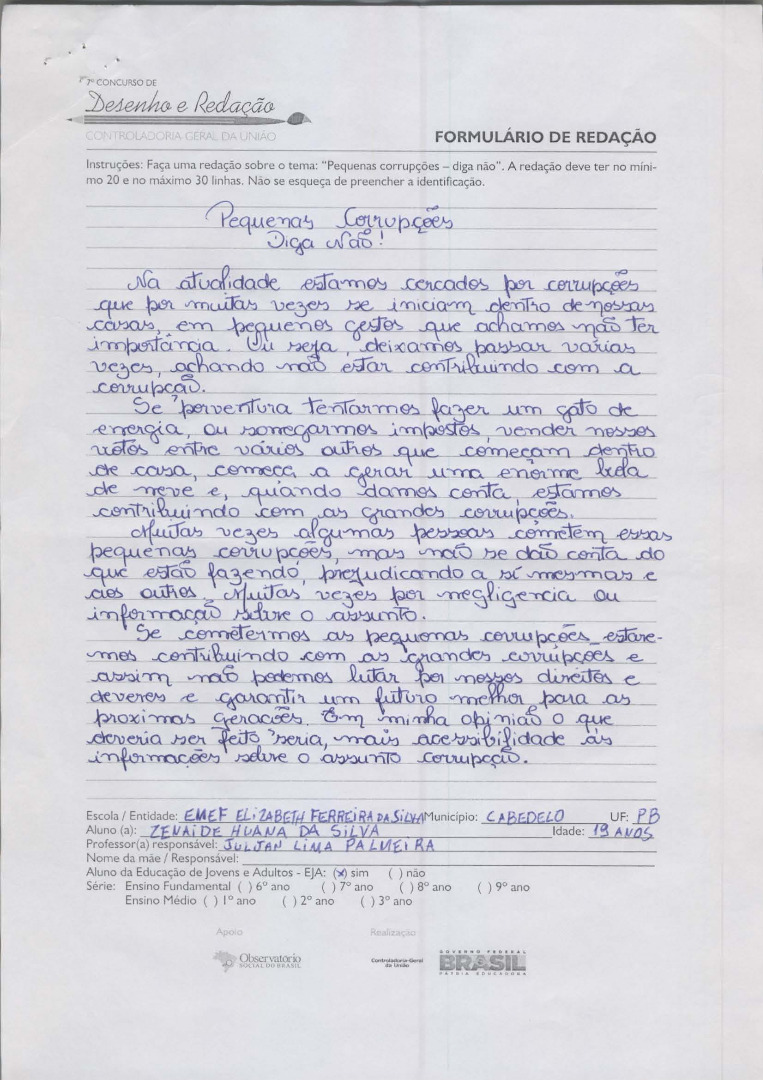 7º CONCURSO DE
Desenho e Redação
CONTROLADORIA-GERAL DA UNIÃO
FORMULÁRIO DE REDAÇÃO
Instruções: Faça uma redação sobre o tema: “Pequenas corrupções – diga não”. A redação deve ter no míni-
mo 20 e no máximo 30 linhas. Não se esqueça de preencher a identificação.
Pequenas Corrupções
Diga Não!
Na atualidade estamos cercados por corrupções
que por muitas vezes se iniciam dentro de nossas
casas, em pequenos gestos que achamos não ter
importância. Ou seja, deixamos passar várias
vezes, achando não estar contribuindo com a
corrupção.
Se porventura tentarmos fazer um gato de
energia, ou sonegarmos impostos, vender nossos
votos entre vários outros que começam dentro
de casa, começa a gerar uma enorme bola
de neve e, quando damos conta, estamos
contribuindo com as grandes corrupções.
Muitas vezes algumas pessoas cometem essas
pequenas corrupções, mas não se dão conta do
que estão fazendo, prejudicando a sí mesmas e
aos outros. Muitas vezes por negligencia ou
informação sobre o assunto.
Se cometermos as pequenas corrupções estare-
mos contribuindo com as grandes corrupções e
assim não podemos lutar por nossos direitos e
deveres e garantir um futuro melhor para as
proximas gerações. Em minha opinião o que
deveria ser feito seria, mais acessibilidade ás
informações sobre o assunto corrupção.
Escola / Entidade: EMEF ELIZABETH FERREIRA DA SILVA Município: CABEDELO UF: PB
Aluno (a): ZENAIDE HUANA DA SILVA Idade: 19 ANOS
Professor(a) responsável: JULIAN LIMA PALMEIRA
Nome da mãe / Responsável:
Aluno da Educação de Jovens e Adultos - EJA: (x) sim ( ) não
Série: Ensino Fundamental ( ) 6º ano ( ) 7º ano ( ) 8º ano ( ) 9º ano
Ensino Médio ( ) 1º ano ( ) 2º ano ( ) 3º ano
Apoio Realização
Observatório
SOCIAL DO BRASIL
Controladoria-Geral
da União
GOVERNO FEDERAL
BRASIL
PÁTRIA EDUCADORA